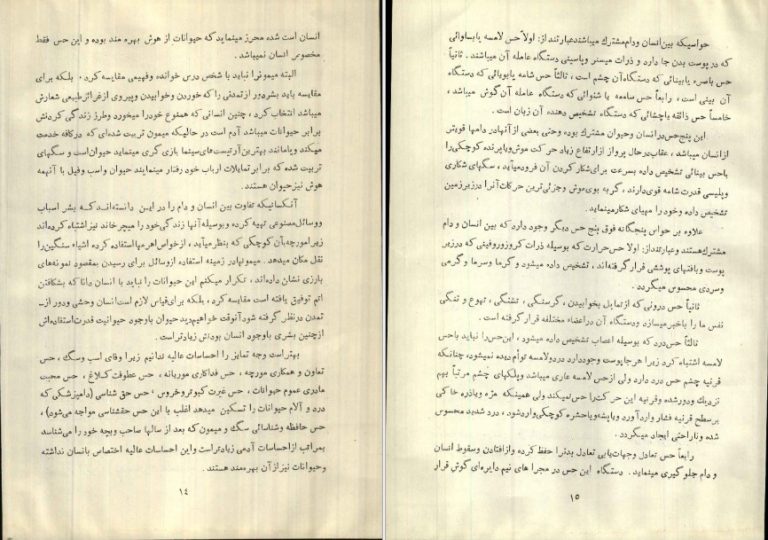 انسان است شده محرز مینماید که حیوانات از هوش بهره مند بوده و این حس فقط
مخصوص انسان نمیباشد.
البته میمونرا نباید با شخص درس خوانده وفهیمی مقایسه کرد. بلکه برای
مقایسه باید بشردور ازتمدنی را که خوردن وخوابیدن وپیروی ازغرائزطبیعی شعارش
میباشد انتخاب کرد، چنین انسانی که همنوع خودرا میخورد وطرز زندگی کردنش
برابر حیوانات میباشد آدم است درحالیکه میمون تربیت شده‌ای که درکافه خدمت
میکند ویامانند بهترین آرتیست‌های‌سینما بازی گری مینماید حیوان‌است و سگهای
تربیت شده که برابر تمایلات ارباب خود رفتار مینمایند حیوان واسب وفیل با آنهمه
هوش نیزحیوان هستند.
آنکسانیکه تفاوت بین انسان و دام را در این دانسته‌اند که بشر اسباب
ووسائل‌مصنوعی تهیه کرده وبوسیله آنها زندگی‌خود را میچرخاند نیزاشتباه کرده‌اند
زیرامورچه‌بآن کوچکی که بنظر میآید، ازخواص‌اهرمهااستفاده کرده اشیاء سنگین‌را
نقل مکان میدهد. میمونهادر زمینه استفاده ازوسائل برای رسیدن بمقصود نمونه‌های
بارزی نشان داده‌اند، تکرار میکنم این حیوانات را نباید با انسان دانا که بشکافتن
اتم توفیق یافته است مقایسه کرد، بلکه برای‌قیاس لازم است‌انسان وحشی ودور از
تمدن درنظر گرفته شود آنوقت خواهیم‌دید حیوان باوجود حیوانیت قدرت‌استفاده‌اش
ازچنین بشری باوجود انسان بودنش زیادتراست.
بهتراست وجه تمایز را احساسات عالیه ندانیم زیرا وفای اسب وسگ، حس
تعاون و همکاری مورچه، حس فداکاری موریانه، حس عطوفت کلاغ، حس محبت
مادری عموم حیوانات، حس غیرت کبوتر وخروس، حس حق شناسی (دامپزشکی که
درد و آلام حیوانات را تسکین میدهد اغلب با این حس حقشناسی مواجه می‌شود)،
حس حافظه وشناسائی سگ و میمون که بعد از سالها صاحب وبچه خود را می‌شناسد
بمراتب ازاحساسات آدمی زیادتراست واین احساسات عالیه اختصاص بانسان نداشته
وحیوانات نیز ازآن بهره‌مند هستند.
۱۴
حواسیکه بین انسان ودام مشترک میباشند عبارتند از: اولاً حس لامسه یابساوائی
که درپوست بدن جا دارد و ذرات میسنر وپاسینی دستگاه عامله آن میباشند. ثانیاً
حس باصره یابینائی که دستگاه آن چشم است، ثالثاً حس شامه یابویائی که دستگاه
آن بینی است، رابعاً حس سامعه یا شنوائی که دستگاه عامله آن گوش میباشد،
خامساً حس ذائقه یاچشائی که دستگاه تشخیص دهنده آن زبان است.
این پنج‌حس‌درانسان وحیوان مشترک بوده وحتی بعضی از آنهادر دامها قویتر
ازانسان میباشد، عقاب درحال پرواز ازارتفاع زیاد حرکت موش ویاپرنده کوچکی‌را
باحس بینائی تشخیص داده بسرعت برای شکار کردن آن فرودمیآید، سگهای شکاری
وپلیسی قدرت شامه قوی‌دارند، گربه بوی‌موش وجزئی‌ترین حرکات آنرا درزیرزمین
تشخیص داده وخود را مهیای شکارمینماید.
علاوه بر حواس پنجگانه فوق پنج حس دیگر وجود دارد که بین انسان و دام
مشترک‌هستند وعبارتنداز: اولا حس‌حرارت که بوسیله ذرات کروزوروفینی که درزیر
پوست وبافتهای پوششی قرار گرفته‌اند، تشخیص داده میشود و گرما وسرما و گرمی
وسردی محسوس میگردد.
ثانیاً حس درونی که ازتمایل بخوابیدن، گرسنگی، تشنگی، تهوع و تنگی
نفس ما را باخبرمیسازد ودستگاه آن دراعضاء مختلفه قرار گرفته است.
ثالثاً حس‌درد که بوسیله اعصاب تشخیص داده میشود، این‌حس‌را نباید باحس
لامسه اشتباه کرد زیرا هرجاپوست وجوددارد دردولامسه توأم دیده نمیشود، چنانکه
قرنیه چشم حس درد دارد ولی ازحس لامسه عاری میباشد وپلکهای چشم مرتباً بهم
نزدیک ودورشده وقرنیه این حرکت را حس نمیکند ولی همینکه مژه ویاذره خاکی
برسطح قرنیه فشار واردآورد ویاپشه ویاحشره کوچکی‌واردشود، درد شدید محسوس
شده وناراحتی ایجاد میگردد.
رابعاً حس تعادل وجهات‌یابی تعادل بدنرا حفظ کرده وازافتادن وسقوط انسان
و دام جلوگیری مینماید. دستگاه این حس در مجراهای نیم دایره‌ای گوش قرار
۱۵